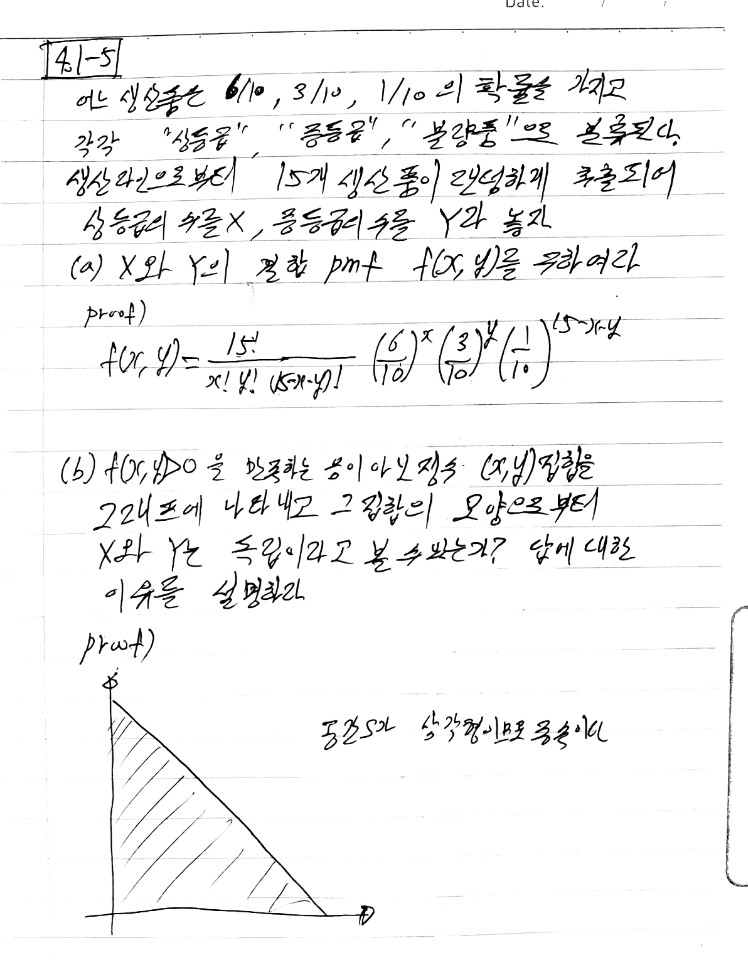 Date. / /
4.1-5
어느 생산품은 6/10, 3/10, 1/10의 확률을 가지고
각각 "상등급", "중등급", "불량품"으로 분류된다.
생산라인으로부터 15개 생산품이 랜덤하게 추출되어
상등급의 수를 X, 중등급의 수를 Y라 놓자
(a) X와 Y의 결합 pmf f(x,y)를 구하여라
proof)
f(x,y) = 15! / x! y! (15-x-y)! (6/10)^x (3/10)^y (1/10)^15-x-y
(b) f(x,y)>0을 만족하는 음이 아닌 정수 (x,y)집합을
그래프에 나타내고 그 집합의 모양으로부터
X와 Y는 독립이라고 볼 수 있는가? 답에 대한
이유를 설명하라
proof)
공간 S가 삼각형이므로 종속이다